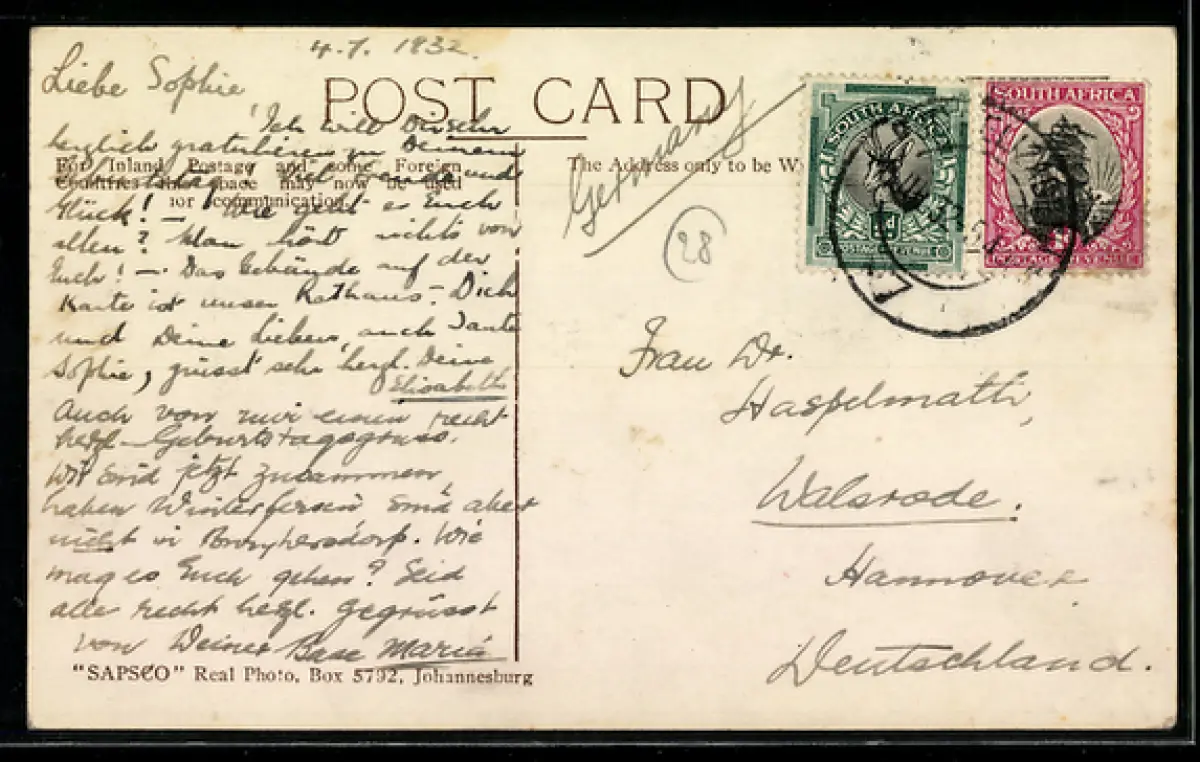 4.7. 1932.
Liebe Sophie,
POST CARD
Ich will Dir sehr
herzlich gratulieren zu Deinem
For Inland Postage and some Foreign
Countries this space may now be used
for communication.
The Address only to be
Germany
28
Glück! – Wie geht es Euch
allen? Man hört nichts von
Euch! – Das Gebäude auf der
Karte ist unser Rathaus. – Dich
und Deine Lieben, auch Tante
Sophie, grüsst sehr herzl. Deine
Elisabeth
Auch von mir einen recht
herzl. Geburtstagsgruss.
Wir sind jetzt zusammen,
haben Winterferien sind aber
nicht in
mag es Euch gehen? Seid
alle recht herzl. gegrüsst
von Deiner Base Maria
"SAPSCO" Real Photo, Box 5792, Johannesburg
SOUTH AFRICA
½d
POSTAGE REVENUE
SOUTH AFRICA
1d
POSTAGE REVENUE
Frau Dr.
Haspelmath,
Walsrode.
Hannover
Deutschland.